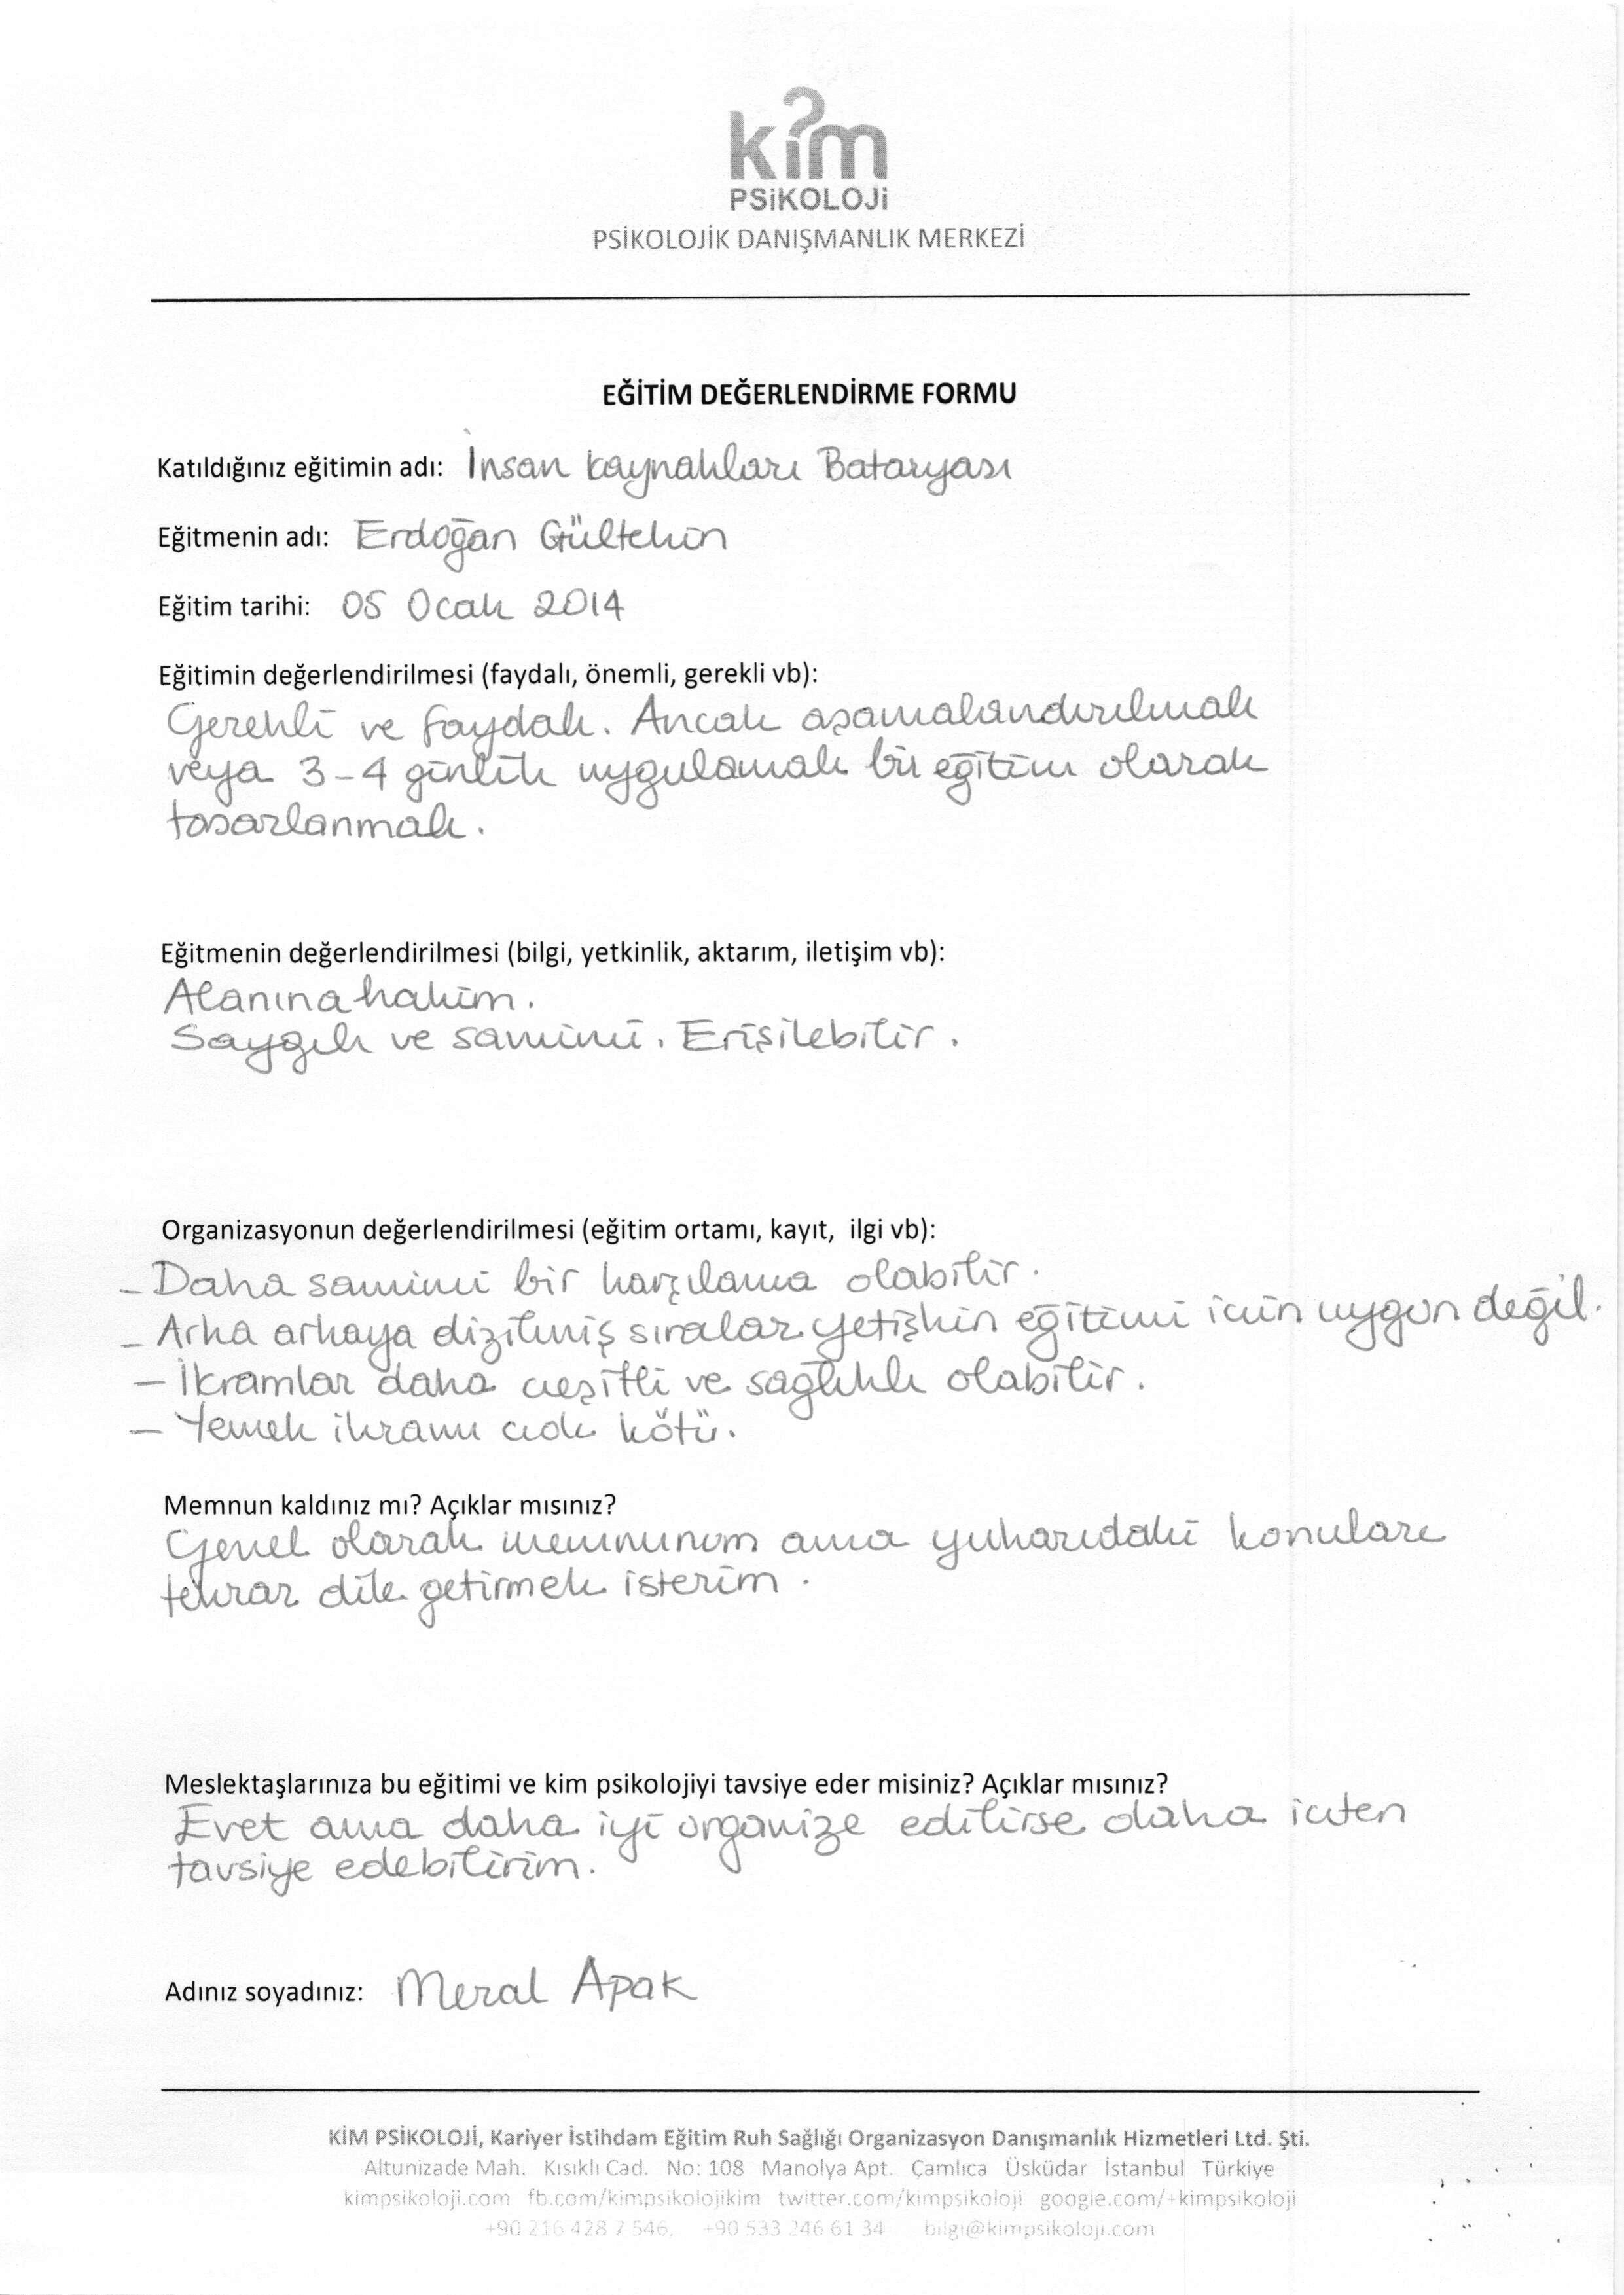 kim
PSiKOLOJi
PSİKOLOJİK DANIŞMANLIK MERKEZİ
EĞİTİM DEĞERLENDİRME FORMU
Katıldığınız eğitimin adı: İnsan kaynakları Bataryası
Eğitmenin adı: Erdoğan Gültekin
Eğitim tarihi: 05 Ocak 2014
Eğitimin değerlendirilmesi (faydalı, önemli, gerekli vb):
Gerekli ve faydalı. Ancak aşamalandırılmalı
veya 3-4 günlük uygulamalı bir eğitim olarak
tasarlanmalı.
Eğitmenin değerlendirilmesi (bilgi, yetkinlik, aktarım, iletişim vb):
Alanına hakim.
Saygılı ve samimi. Erişilebilir.
Organizasyonun değerlendirilmesi (eğitim ortamı, kayıt, ilgi vb):
- Daha samimi bir karşılama olabilir.
- Arka arkaya dizilmiş sıralar yetişkin eğitimi için uygun değil.
- İkramlar daha çeşitli ve sağlıklı olabilir.
- Yemek ikramı çok kötü.
Memnun kaldınız mı? Açıklar mısınız?
Genel olarak memnunum ama yukarıdaki konuları
tekrar dile getirmek isterim.
Meslektaşlarınıza bu eğitimi ve kim psikolojiyi tavsiye eder misiniz? Açıklar mısınız?
Evet ama daha iyi organize edilirse daha içten
tavsiye edebilirim.
Adınız soyadınız: Meral Apak
KİM PSİKOLOJİ, Kariyer İstihdam Eğitim Ruh Sağlığı Organizasyon Danışmanlık Hizmetleri Ltd. Şti.
Altunizade Mah. Kısıklı Cad. No: 108 Manolya Apt. Çamlıca Üsküdar İstanbul Türkiye
kimpsikoloji.com fb.com/kimpsikolojikim twitter.com/kimpsikoloji google.com/+kimpsikoloji
+90 216 428 7 546. +90 533 246 61 34 bilgi@kimpsikoloji.com